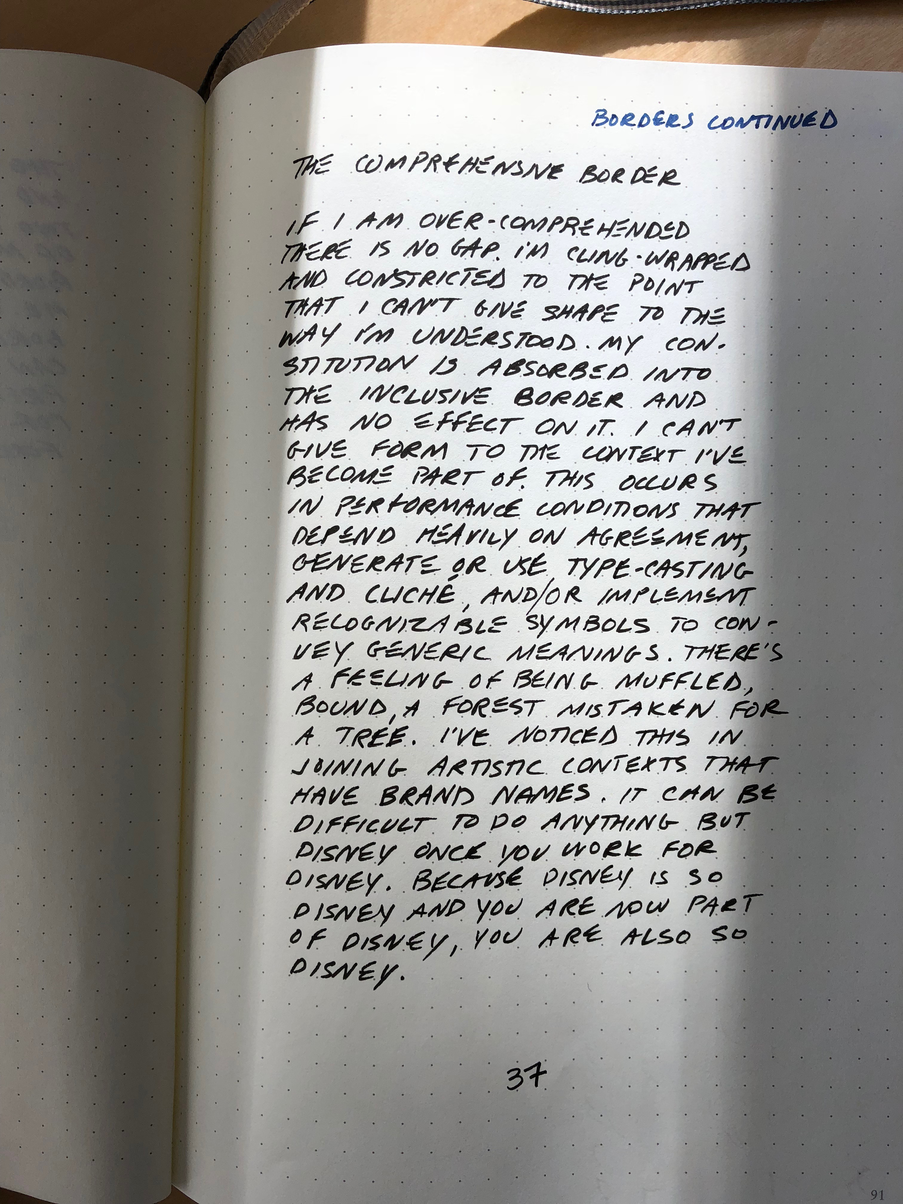 BORDERS CONTINUED
THE COMPREHENSIVE BORDER
IF I AM OVER-COMPREHENDED
THERE IS NO GAP. I'M CLING-WRAPPED
AND CONSTRICTED TO THE POINT
THAT I CAN'T GIVE SHAPE TO THE
WAY I'M UNDERSTOOD. MY CON-
STITUTION IS ABSORBED INTO
THE INCLUSIVE BORDER AND
HAS NO EFFECT ON IT. I CAN'T
GIVE FORM TO THE CONTEXT I'VE
BECOME PART OF. THIS OCCURS
IN PERFORMANCE CONDITIONS THAT
DEPEND HEAVILY ON AGREEMENT,
GENERATE OR USE TYPE-CASTING
AND CLICHÉ, AND/OR IMPLEMENT
RECOGNIZABLE SYMBOLS TO CON-
VEY GENERIC MEANINGS. THERE'S
A FEELING OF BEING MUFFLED,
BOUND, A FOREST MISTAKEN FOR
A TREE. I'VE NOTICED THIS IN
JOINING ARTISTIC CONTEXTS THAT
HAVE BRAND NAMES. IT CAN BE
DIFFICULT TO DO ANYTHING BUT
DISNEY ONCE YOU WORK FOR
DISNEY. BECAUSE DISNEY IS SO
DISNEY AND YOU ARE NOW PART
OF DISNEY, YOU ARE ALSO SO
DISNEY.
37
91